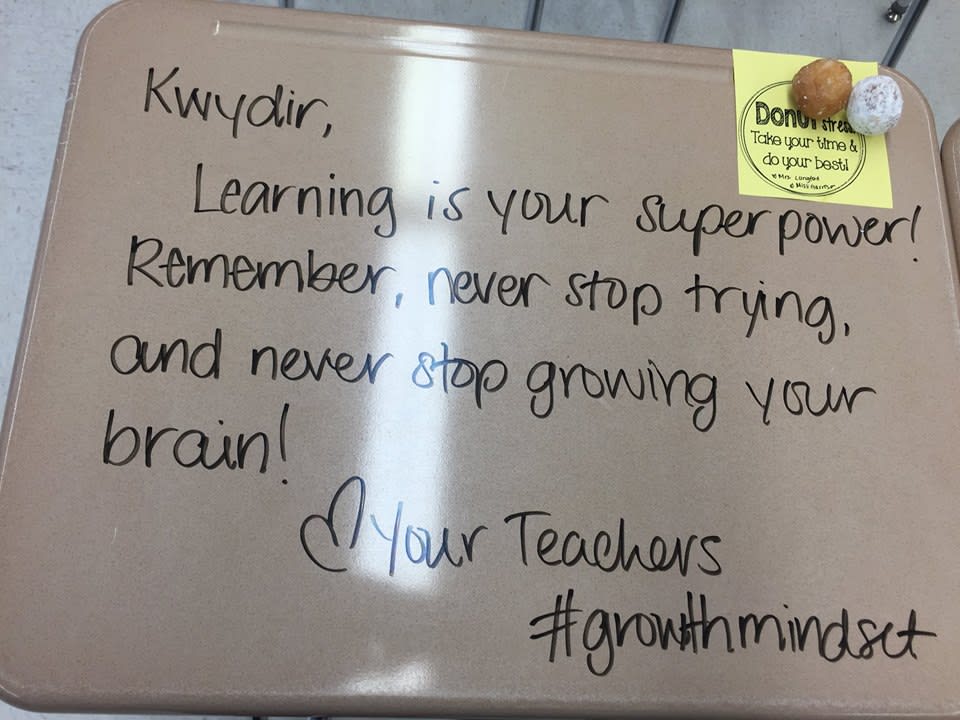 Kwydir,
Learning is your superpower!
Remember, never stop trying,
and never stop growing your
brain!
♡ Your Teachers
#growthmindset
Donut stress
Take your time &
do your best!
Mrs. Langford
Miss Harrison